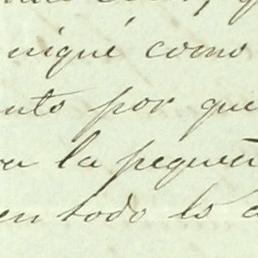 niqué como
nto por que
la pequeñ
en todo lo